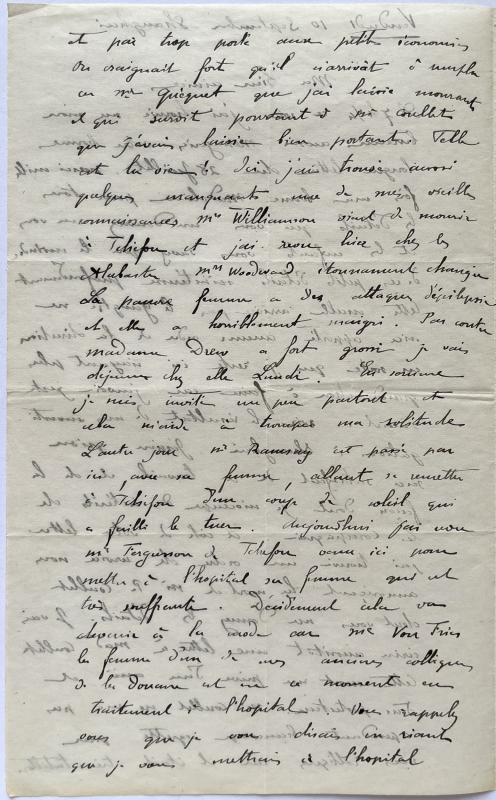 et pas trop porté aux petites économies
On craignait fort qu'il n'arrivât à remplacer
mr Gréquet que j'ai laissé mourant
et qui survit pourtant à mr Coullet
que j'avais laissé bien portant Telle
est la vie ! Ici j'ai trouvé aussi
quelques manquants une de mes vieilles
connaissances mrs Williamson vient de mourir
à Tchéfou et j'ai revu hier chez les
Alabaster mrs Woodward étonnament changée
La pauvre femme a des attaques d'épilepsie
et elle a horriblement maigri. Par contre
madame Drew a fort grossi je vais
déjeuner chez elle Lundi. En somme
je suis invité un peu partout et
cela m'aide à tromper ma solitude
L'autre jour mr Ramsay est passé par
ici, avec sa femme, allant se remettre
à Tchéfou d'un coup de soleil qui
a failli le tuer. Aujourd'hui j'ai vu
mr Ferguson de Tchéfou venu ici pour
mettre à l'hopital sa femme qui est
très souffrante. Décidément cela va
devenir à la mode car me Von Fries
la femme d'un de nos anciens collègues
de la Douane est en ce moment en
traitement à l'hopital. Vous rappelez
vous que je vous disais en riant
que je vous mettrais à l'hopital